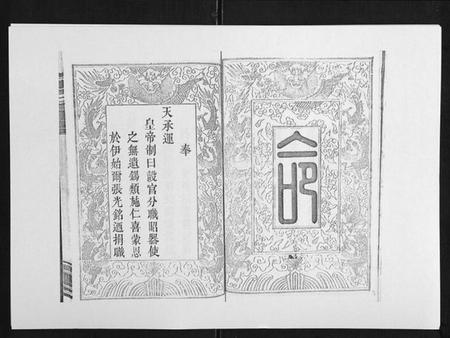 命
奉
天承運
皇帝制曰設官分職昭器使
之無遺錫類施仁喜蒙恩
於伊始爾張光銘迺捐職